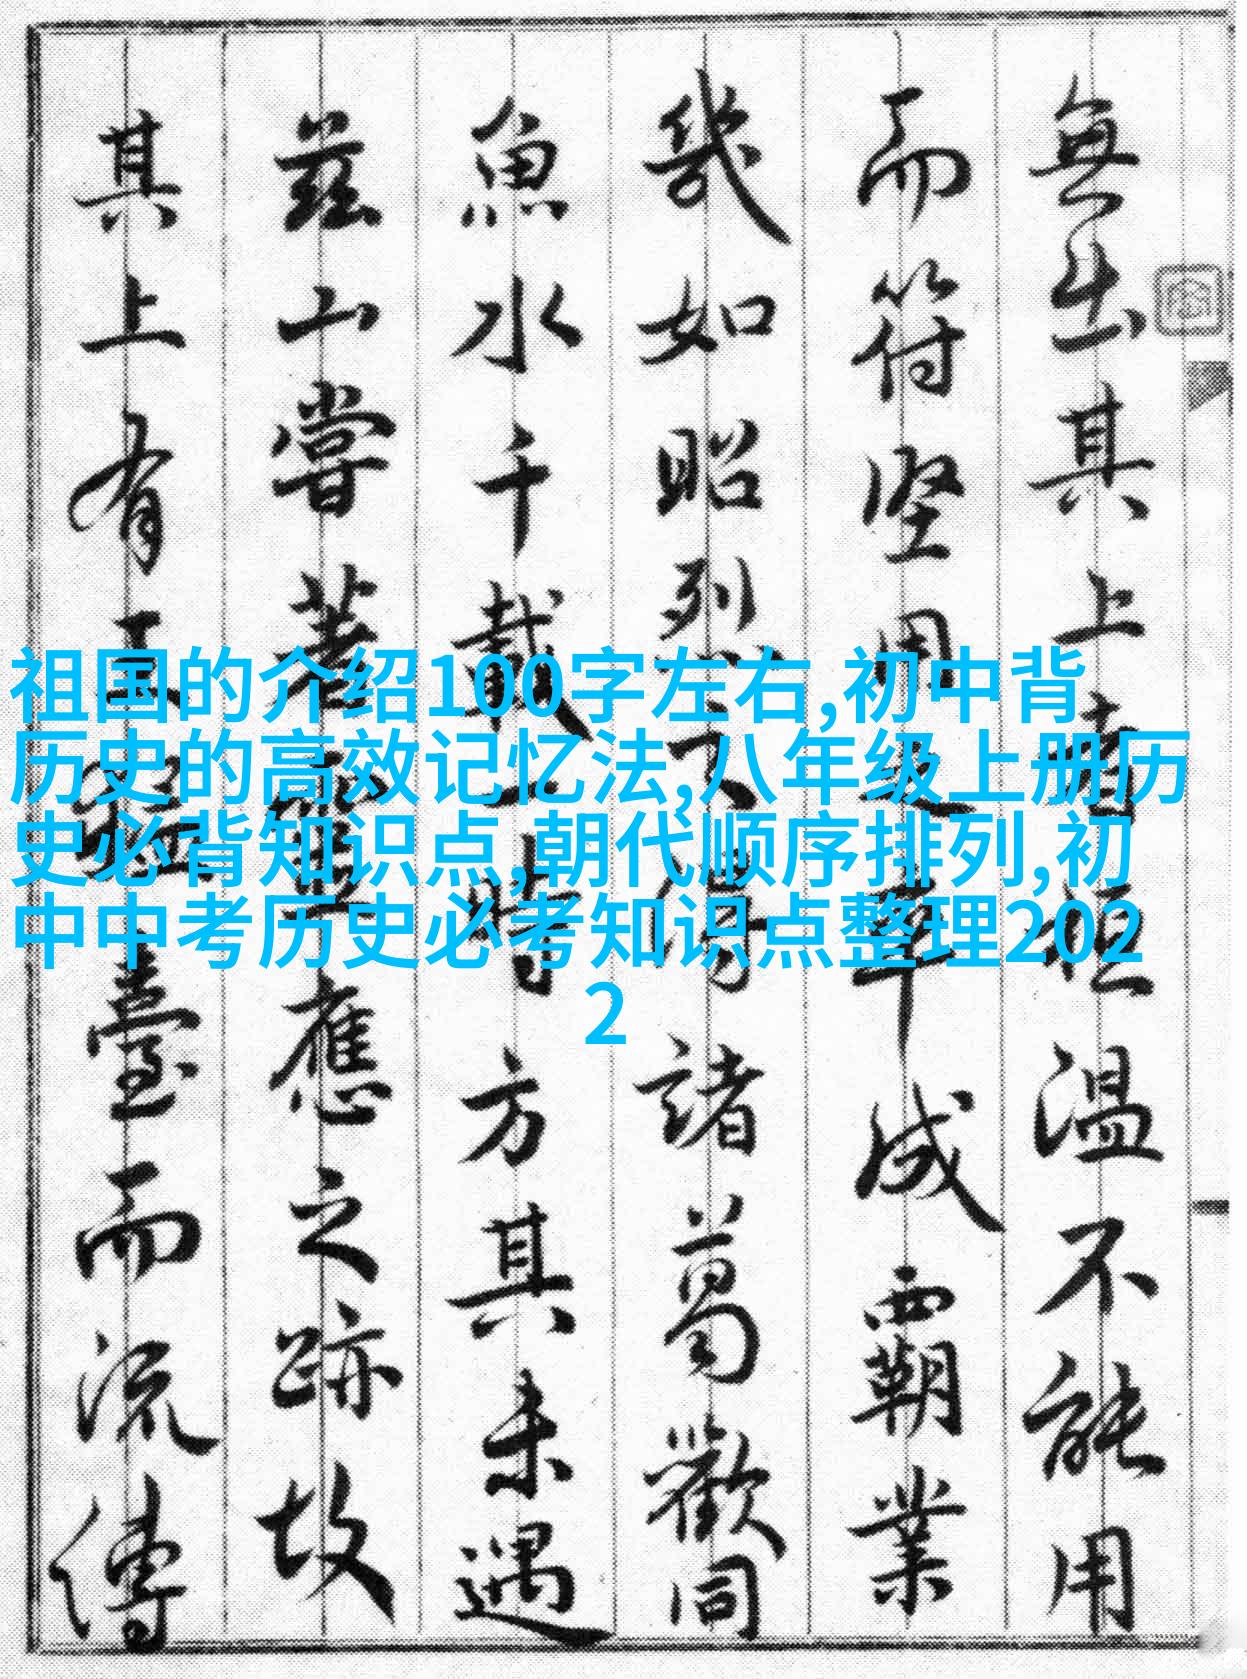 祖国的介绍100字左右,初中背
历史的高效记忆法,八年级上册历
史必背知识点,朝代顺序排列,初
中中考历史必考知识点整理202
2
無出其上者桓温不能用
而符堅用之卒成霸業
幾如昭烈之得諸葛歡同
魚水千載一時方其未遇
茲山嘗著靈應之跡故
其上有王猛臺而流傳